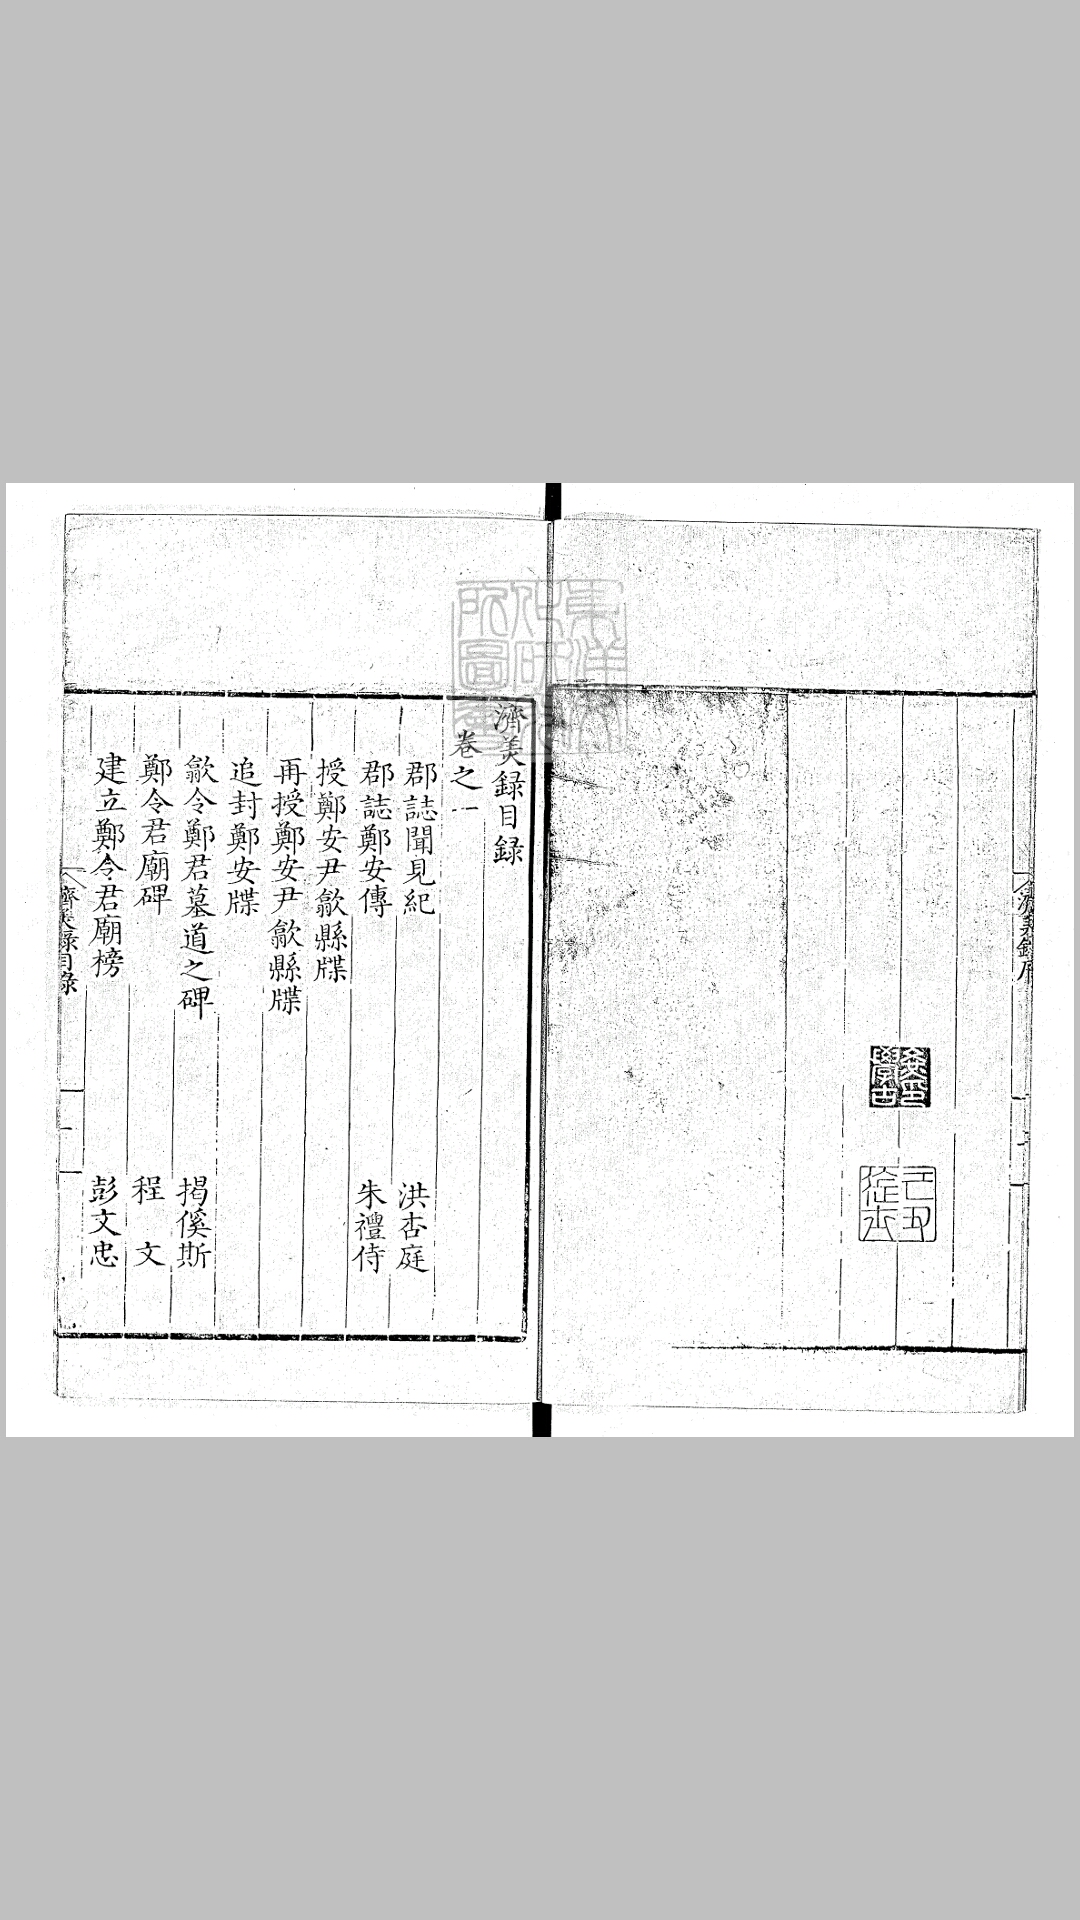 濟美録序
濟美録目録
卷之一
郡誌聞見紀 洪杏庭
郡誌鄭安傳 朱禮侍
授鄭安尹歙縣牒
再授鄭安尹歙縣牒
追封鄭安牒
歙令鄭君墓道之碑 揭傒斯
鄭令君廟碑 程文
建立鄭令君廟榜 彭文忠
濟美録目錄
一